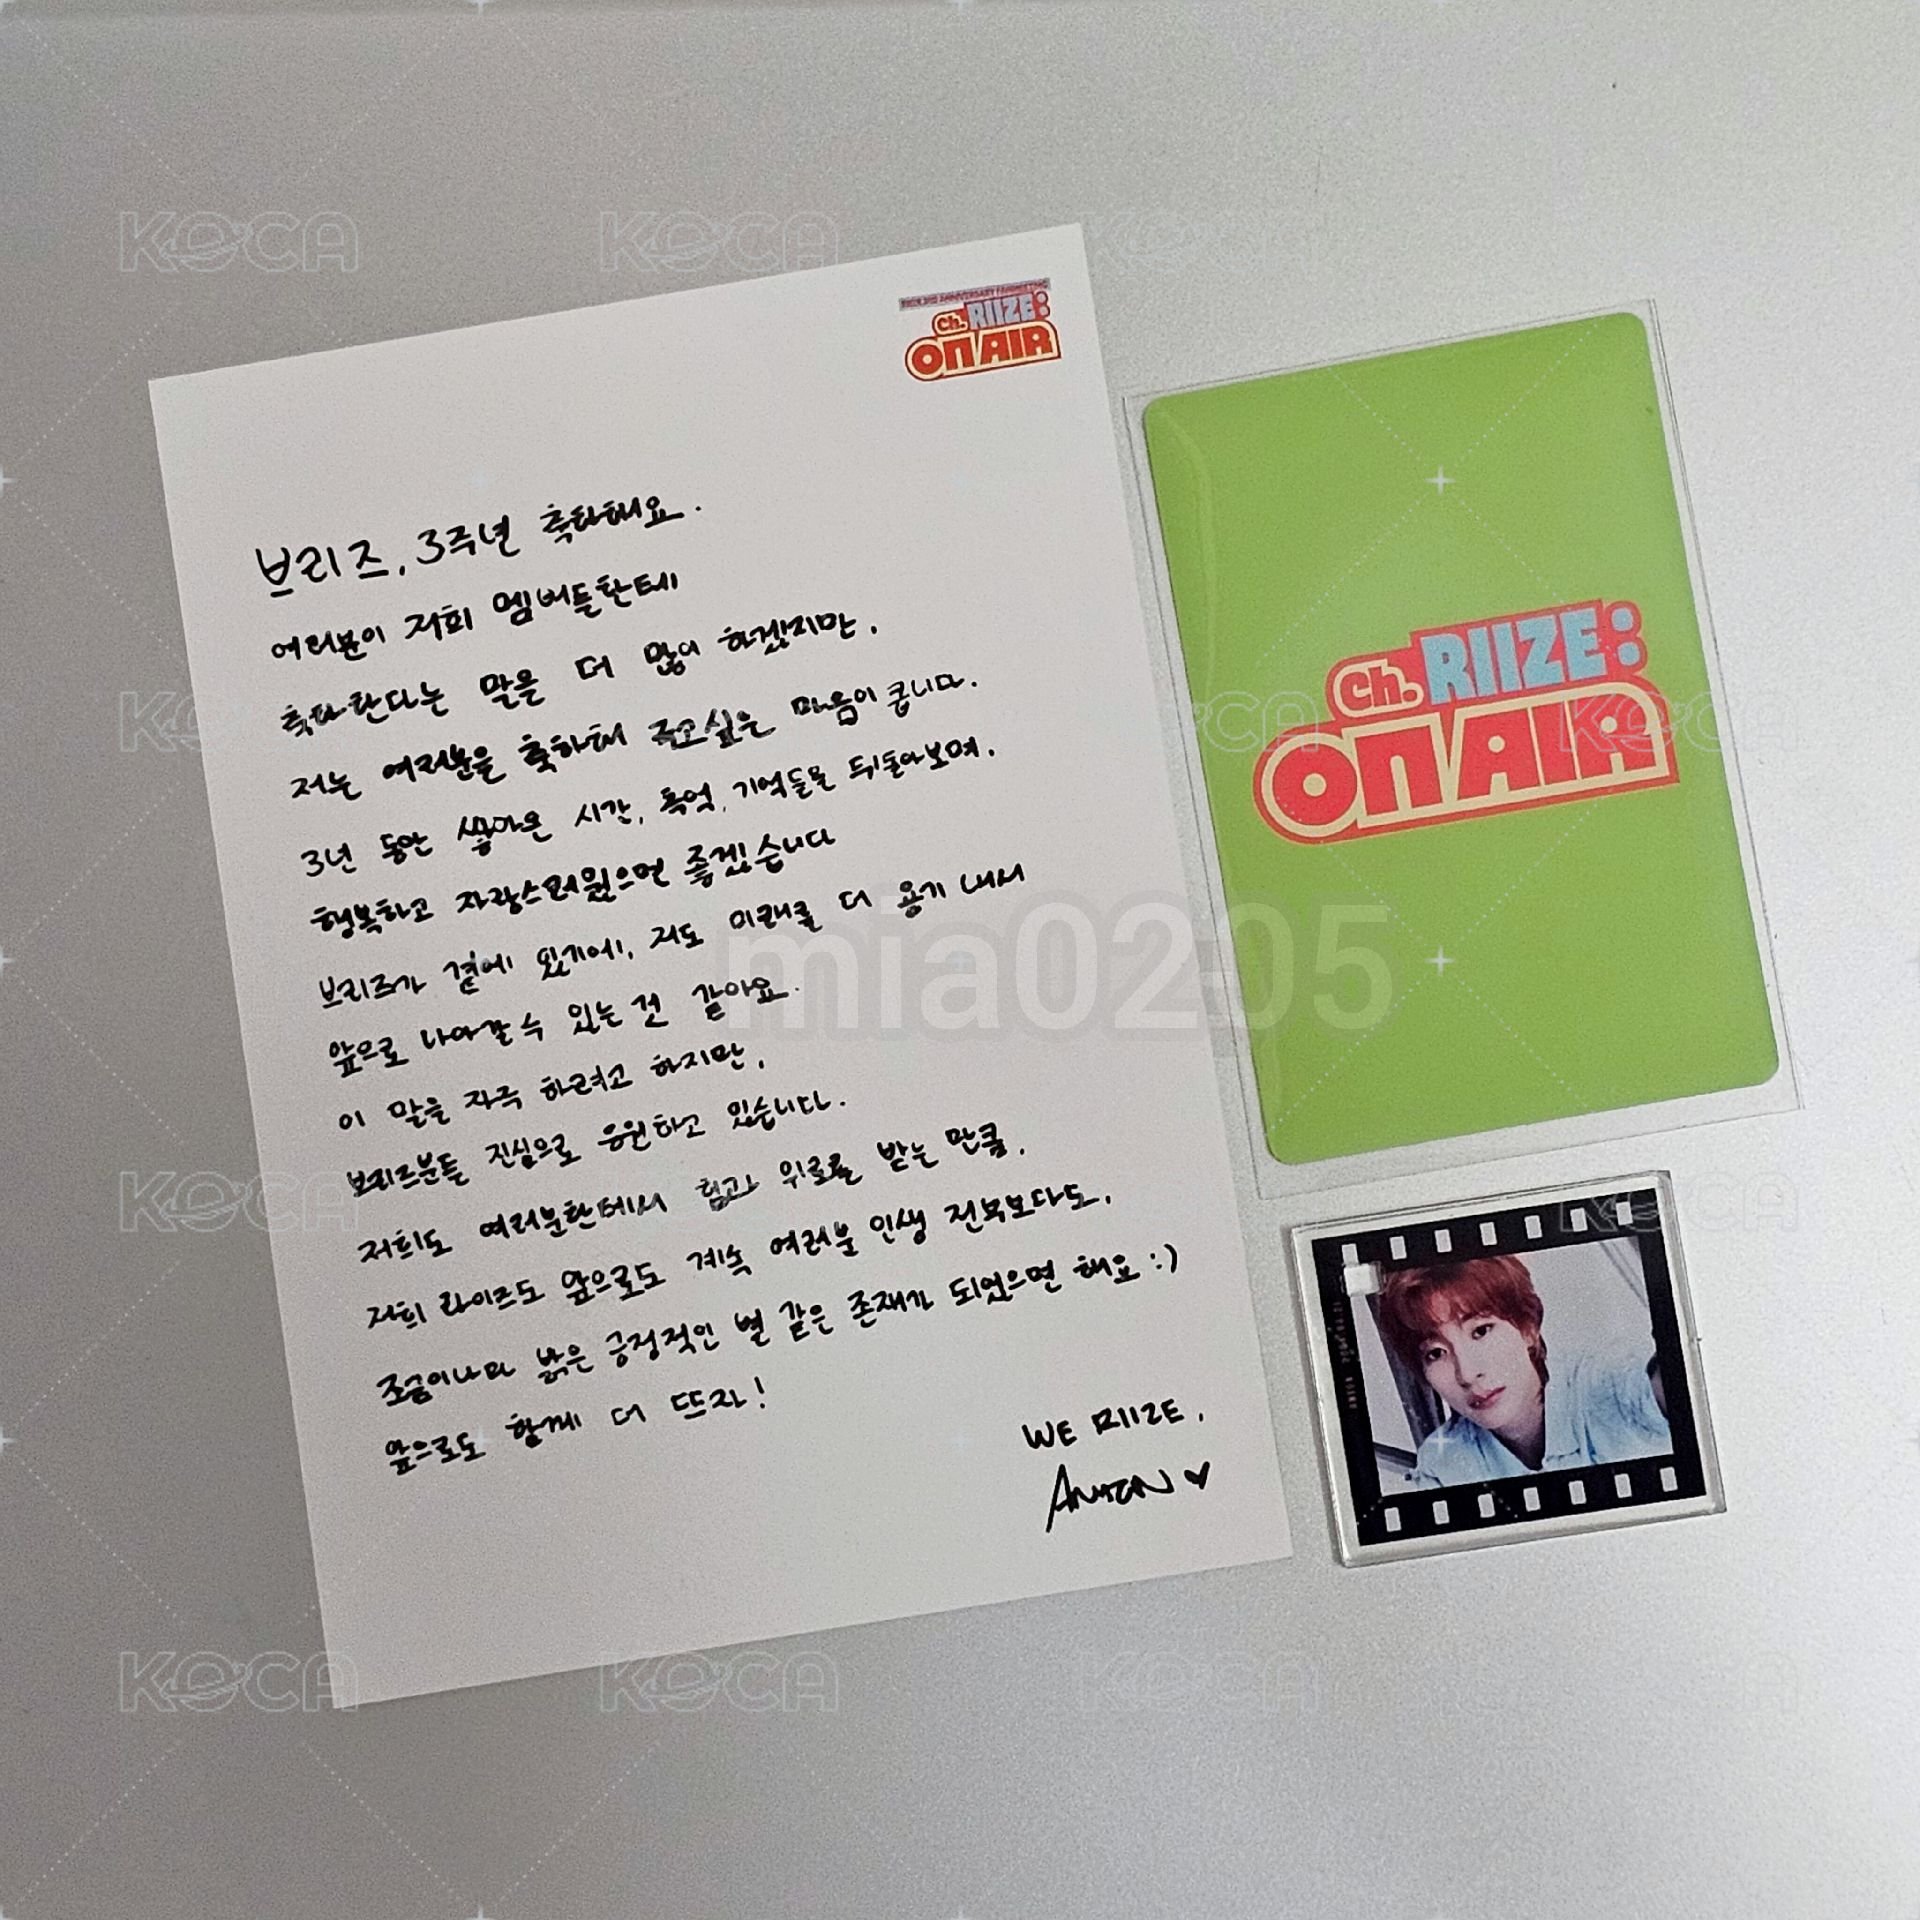 RIIZE 3RD ANNIVERSARY FANMEETING
Ch. RIIZE:
ON AIR
브리즈, 3주년 축하해요.
여러분이 저희 멤버들한테
축하한다는 말을 더 많이 하겠지만,
저는 여러분을 축하해 주고싶은 마음이 큽니다.
3년 동안 쌓아온 시간, 추억, 기억들을 뒤돌아보며,
행복하고 자랑스러웠으면 좋겠습니다
브리즈가 곁에 있기에, 저도 미래를 더 용기 내서
앞으로 나아갈 수 있는 것 같아요.
이 말을 자주 하려고 하지만,
브리즈분들 진심으로 응원하고 있습니다.
저희도 여러분한테서 힘과 위로를 받는 만큼,
저희 라이즈도 앞으로도 계속 여러분 인생 전복보다도,
조금이나마 밝은 긍정적인 별 같은 존재가 되었으면 해요 :)
앞으로도 함께 더 뜨자!
WE RIIZE,
ANTON ♥
Ch. RIIZE:
ON AIR
mia0205
KOCA
KOCA
KOCA
KOCA
KOCA
KOCA
KOCA